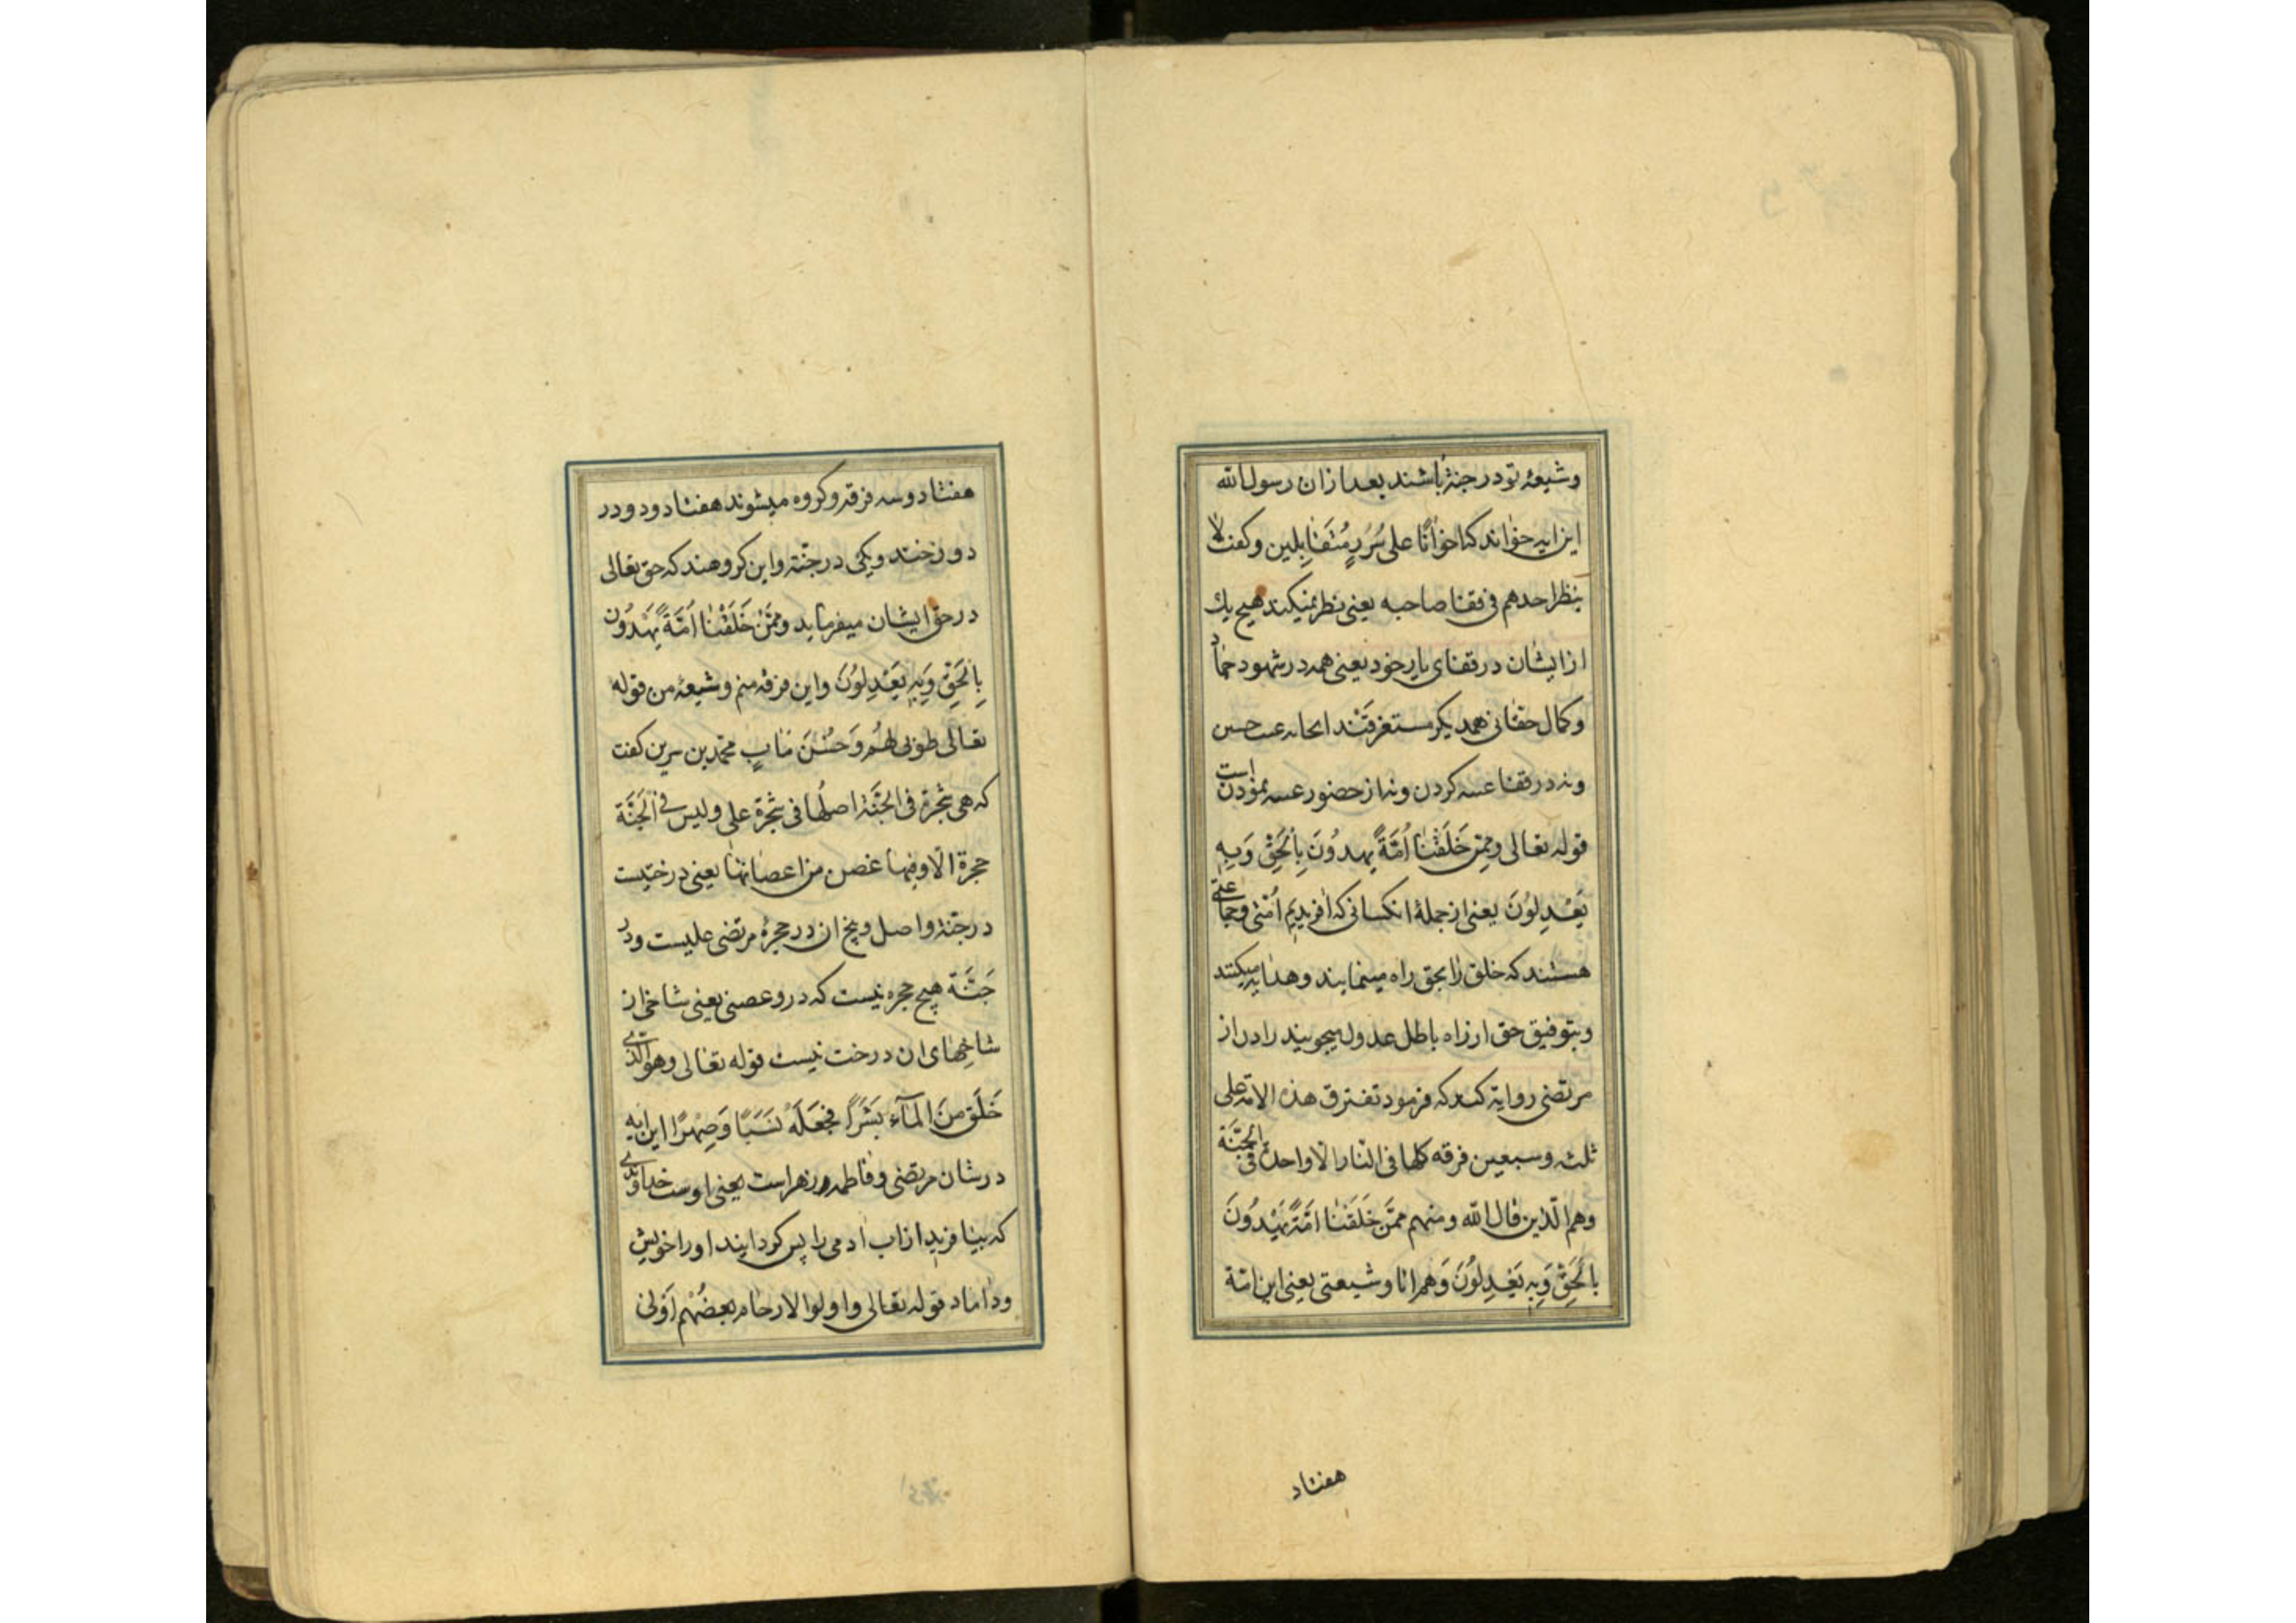 وشیعهٔ تو در جنة باشند بعد از ان رسول الله
این ایه خواند که اخوانًا علی سُرُرٍ مُتَقَابِلین وکفت لا
ینظر احدهم فی قفا صاحبه یعنی نظر نمیکند هیچ یك
از ایشان در قفای یار خود یعنی همه در شهود جمال
وکمال حقانی همدیکر مستغرقند
ونه در قفا کردن ونه از حضور نمودن است
قوله تعالی وممن خَلَقْنَا اُمَّةً یهدُونَ بِالْحَقِّ وَبِهِ
یَعْدِلُونَ یعنی از جملهٔ انکسانی که افریدیم اُمّتی وجماعتی
هستند که خلق را بحق راه مینمایند وهدایه میکنند
وبتوفیق حق از راه باطل عدول میجویند
مرتضی روایة کند که فرمود تفترق هذه الامة علی
ثلثه وسبعین فرقه کلها فی النار الا واحدة فی الجنَّة
وهم الّذین قال الله ومنهم ممَّن خَلَقْنَا امَّةً یَهْدُونَ
بالْحَقِّ وَبِهِ یَعْدِلُونَ وَهم انا وشیعتی یعنی این امّة
هفتاد
هفتاد وسه فرقه وکروه میشوند هفتاد ودو در
دوزخند ویکی در جنّة واین کروهند که حق تعالی
در حق ایشان میفرماید وممَّنْ خَلَقْنَا اُمَّةً یَهْدُونَ
بِالْحَقِّ وَبِهِ یَعْدِلُونَ واین فرقه منم وشیعهٔ من قوله
تعالی طوبی لهُم وَحُسْنَ مَابٍ محمّد بن سرین کفت
که هی شجرة فی الجنَّة اصلُها فی حجرة علی ولیس فی الجَنَّة
حجرة الّا وفیها غصن من اعصانها یعنی درختیست
در جنّة واصل وبیخ ان در حجرهٔ مرتضی علیست ودر
جَنَّة هیچ حجره نیست که درو عصنی یعنی شاخی از
شاخهای ان درخت نیست قوله تعالی وهو الّذی
خَلَقَ مِنَ الْمَآءِ بَشَرًا فَجَعَلَهُ نَسَبًا وَصِهْرًا این ایه
در شان مرتضی وفاطمه زهراست یعنی اوست خداوندی
که بیافرید از اب ادمی را پس کردانید او را خویش
وداماد قوله تعالی واولوا الارحام بعضُهُم اَوْلیٰ